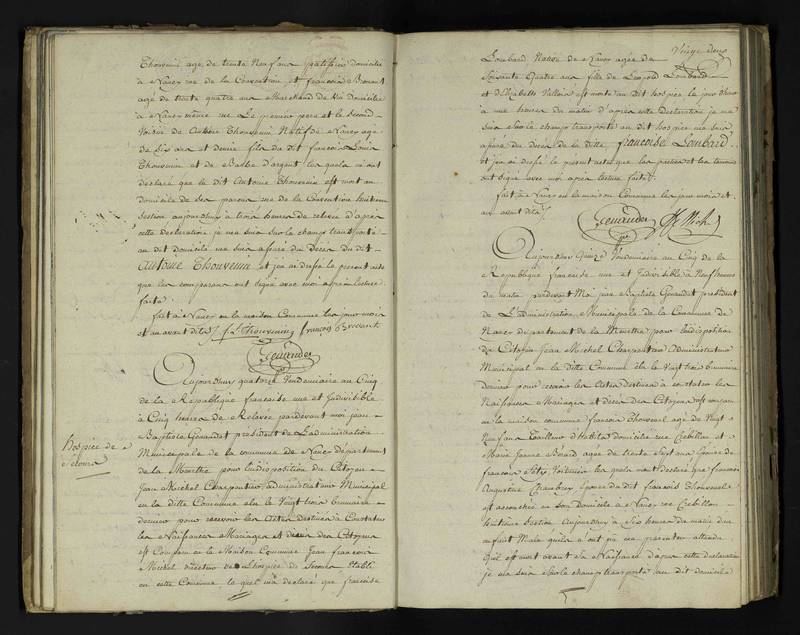 Thouvenin age de trente Neuf ans patissier domicilié
à Nancy rue de la Convention et francois Brevant
agé de trente quatre ans Marchand de vin Domicilié
à Nancy même rue Le premier pere et le Second
Voisin de Antoine Thouvenin Natif de Nancy age
de Six ans et demie fils du dit francois Louis
Thouvenin et de Barbe d'argent les quels m'ont
declaré que le dit Antoine Thouvenin est mort au
domicile de Ses parens rue de la Convention huitieme
Section aujourdhuy à trois heures de relevée d'apres
cette declaration je me suis Sur le champ transporté
au dit domicile me suis assuré du Deces du dit
Antoine Thouvenin et j'en ai dressé le present acte
que les comparans ont signé avec moi après lecture
faite
fait à Nancy en la maison Commune les jour mois
et an avant dits f. L. Thouvenin françois Brevant
Genaudet
Aujourdhuy quatorze Vendemiaire an Cinq
de la Republique francaise une et Indivisible
à Cinq heures de Relevée pardevant moi jean
Hospice de
Secours
Baptiste Genaudet président de L'administration
Municipale de la commune de Nancy département
de la Meurthe pour l'indisposition du Citoyen
Jean Michel Charpentier, administrateur Municipal
en la ditte Commune élu le Vingt trois brumaire
dernier pour recevoir les Actes destinés à Constater
les Naissances Mariages et décès des Citoyens
est Comparu en la Maison Commune Jean francois
Michel directeur de L'hospice de Secours Etabli
en cette Commune le quel m'a declaré que francoise
Vingt deux
Lombard Native de Nancy agée de
Soixante Quatre ans fille de Leopold Lombard
et d'Elizabeth Vallois est morte au dit hospice le jour d'huy
à une heure du matin d'après cette Declaration je me
suis Sur le champ transporté au dit hospice me suis
assuré du Deces de la ditte francoise Lombard
et j'en ai dressé le présent acte que
ont signé avec moi après lecture faite
fait à Nancy en la maison Commune les jour mois et
an avant dits
Genaudet
Aujourdhuy Quinze Vendemiaire an Cinq de la
Republique française une et Indivisible à Neuf heures
du matin pardevant Moi jean Baptiste Genaudet president
de L'administration Municipale de la Commune de
Nancy département de la Meurthe pour l'indisposition
du Citoyen Jean Michel Charpentier Administrateur
Municipal en la Ditte Commune élu le Vingt trois brumaire
Dernier pour recevoir les Actes Destinés à constater les
Naissances Mariages et décès des Citoyens
en la maison commune francois Thouvenel agé de Vingt
Neuf ans Tailleur d'habits domicilié rue Crebillon et
Marie Jeanne agée de trente Sept ans Epouse de
francois les quels m'ont declaré que francoise
Augustine Chambrey Epouse du dit francois Thouvenel
est accouchée en Son domicile à Nancy rue Crebillon
huitieme Section Aujourdhuy à Six heures du matin d'un
enfant Male quils n'ont pu
Quil est mort avant Sa Naissance d'apres cette declaration
je me suis Sur le champ transporté au dit domicile